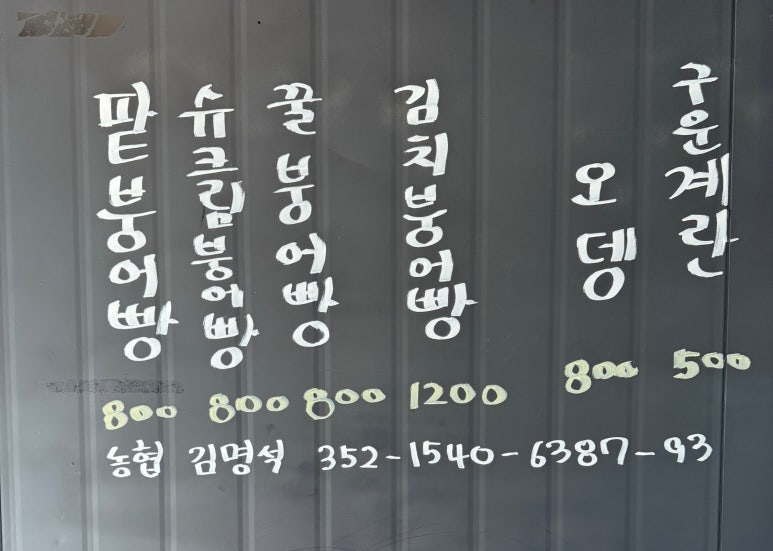 팥붕어빵
슈크림붕어빵
꿀붕어빵
김치붕어빵
오뎅
구운계란
800 800 800 1200 800 500
농협 김명석 352-1540-6387-93